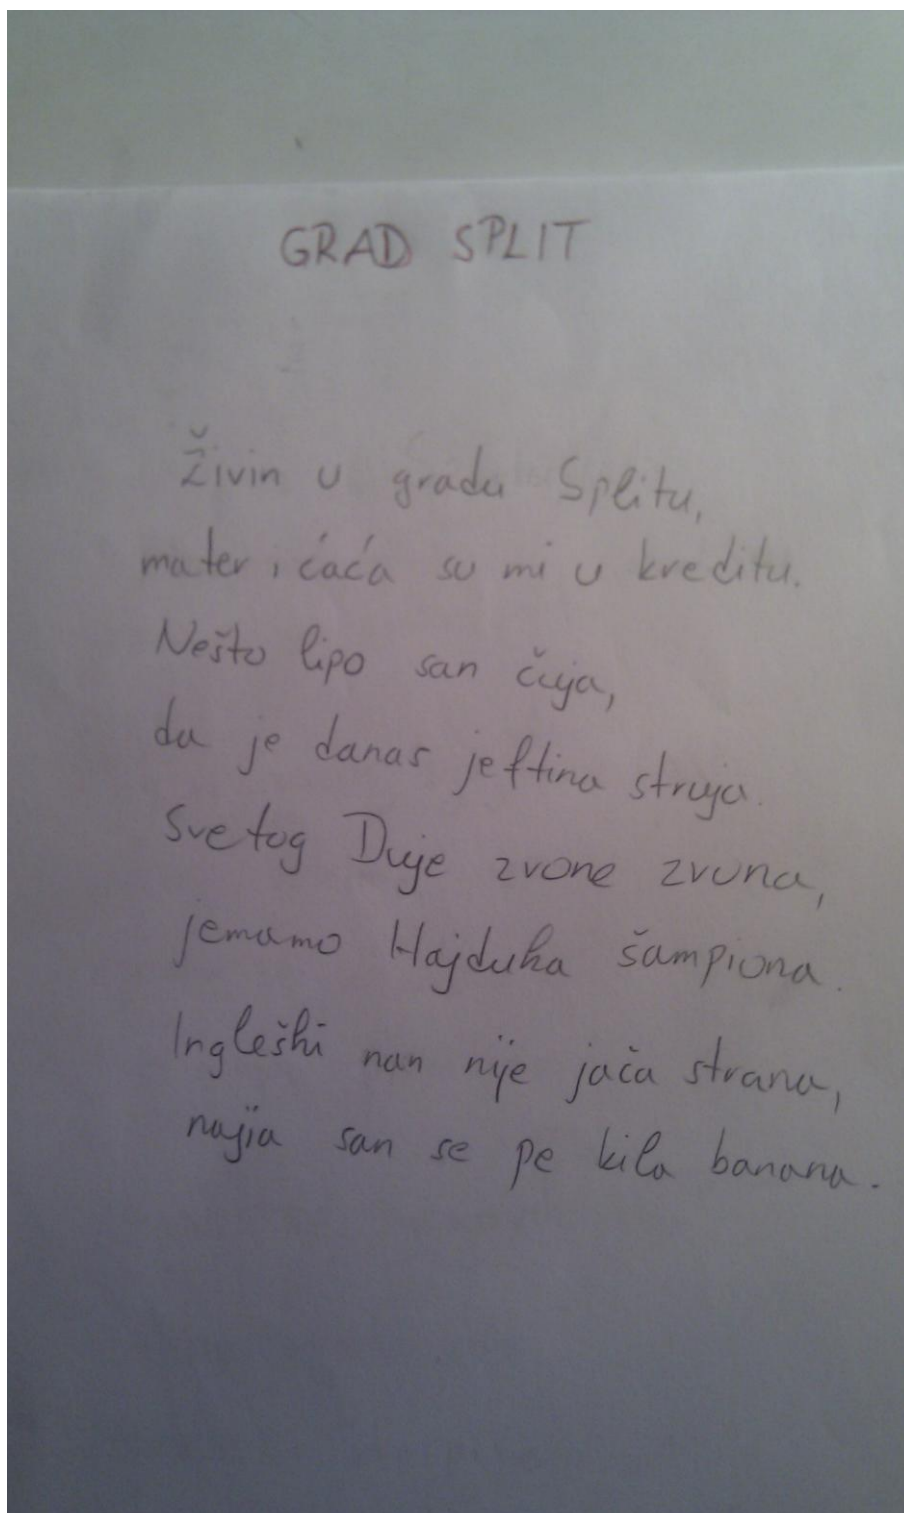 GRAD SPLIT
Živin u gradu Splitu,
mater i ćaća su mi u kreditu.
Nešto lipo san čuja,
da je danas jeftina struja.
Svetog Duje zvone zvona,
jemamo Hajduka šampiona.
Ingleški nan nije jača strana,
najia san se pe kila banana.